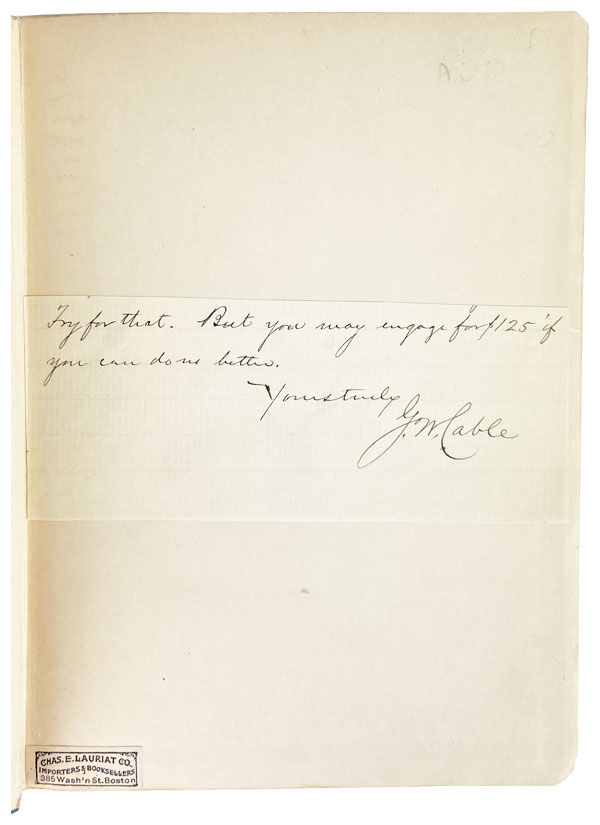 Try for that. But you may engage for $125 if
you can do no better.
Yours truly
G.W. Cable
CHAS. E. LAURIAT CO.
IMPORTERS & BOOKSELLERS
385 Wash'n St. Boston